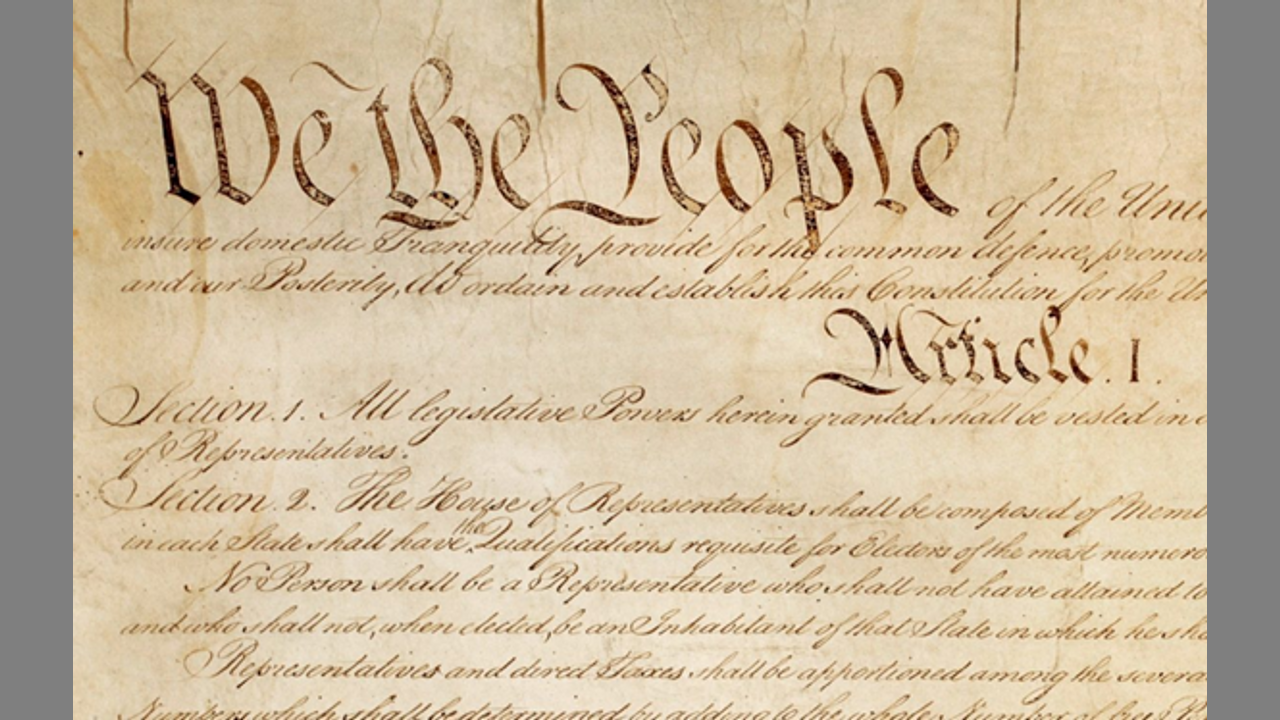 We the People of the Uni
insure domestic Tranquility, provide for the common defence, promo
and our Posterity, do ordain and establish this Constitution for the Un
Article. I.
Section. 1. All legislative Powers herein granted shall be vested in a
of Representatives.
Section. 2. The House of Representatives shall be composed of Memb
the
in each State shall have Qualifications requisite for Electors of the most numero
No Person shall be a Representative who shall not have attained to
and who shall not, when elected, be an Inhabitant of that State in which he sha
Representatives and direct Taxes shall be apportioned among the severa
Numbers which shall be determined by adding to the whole Number of